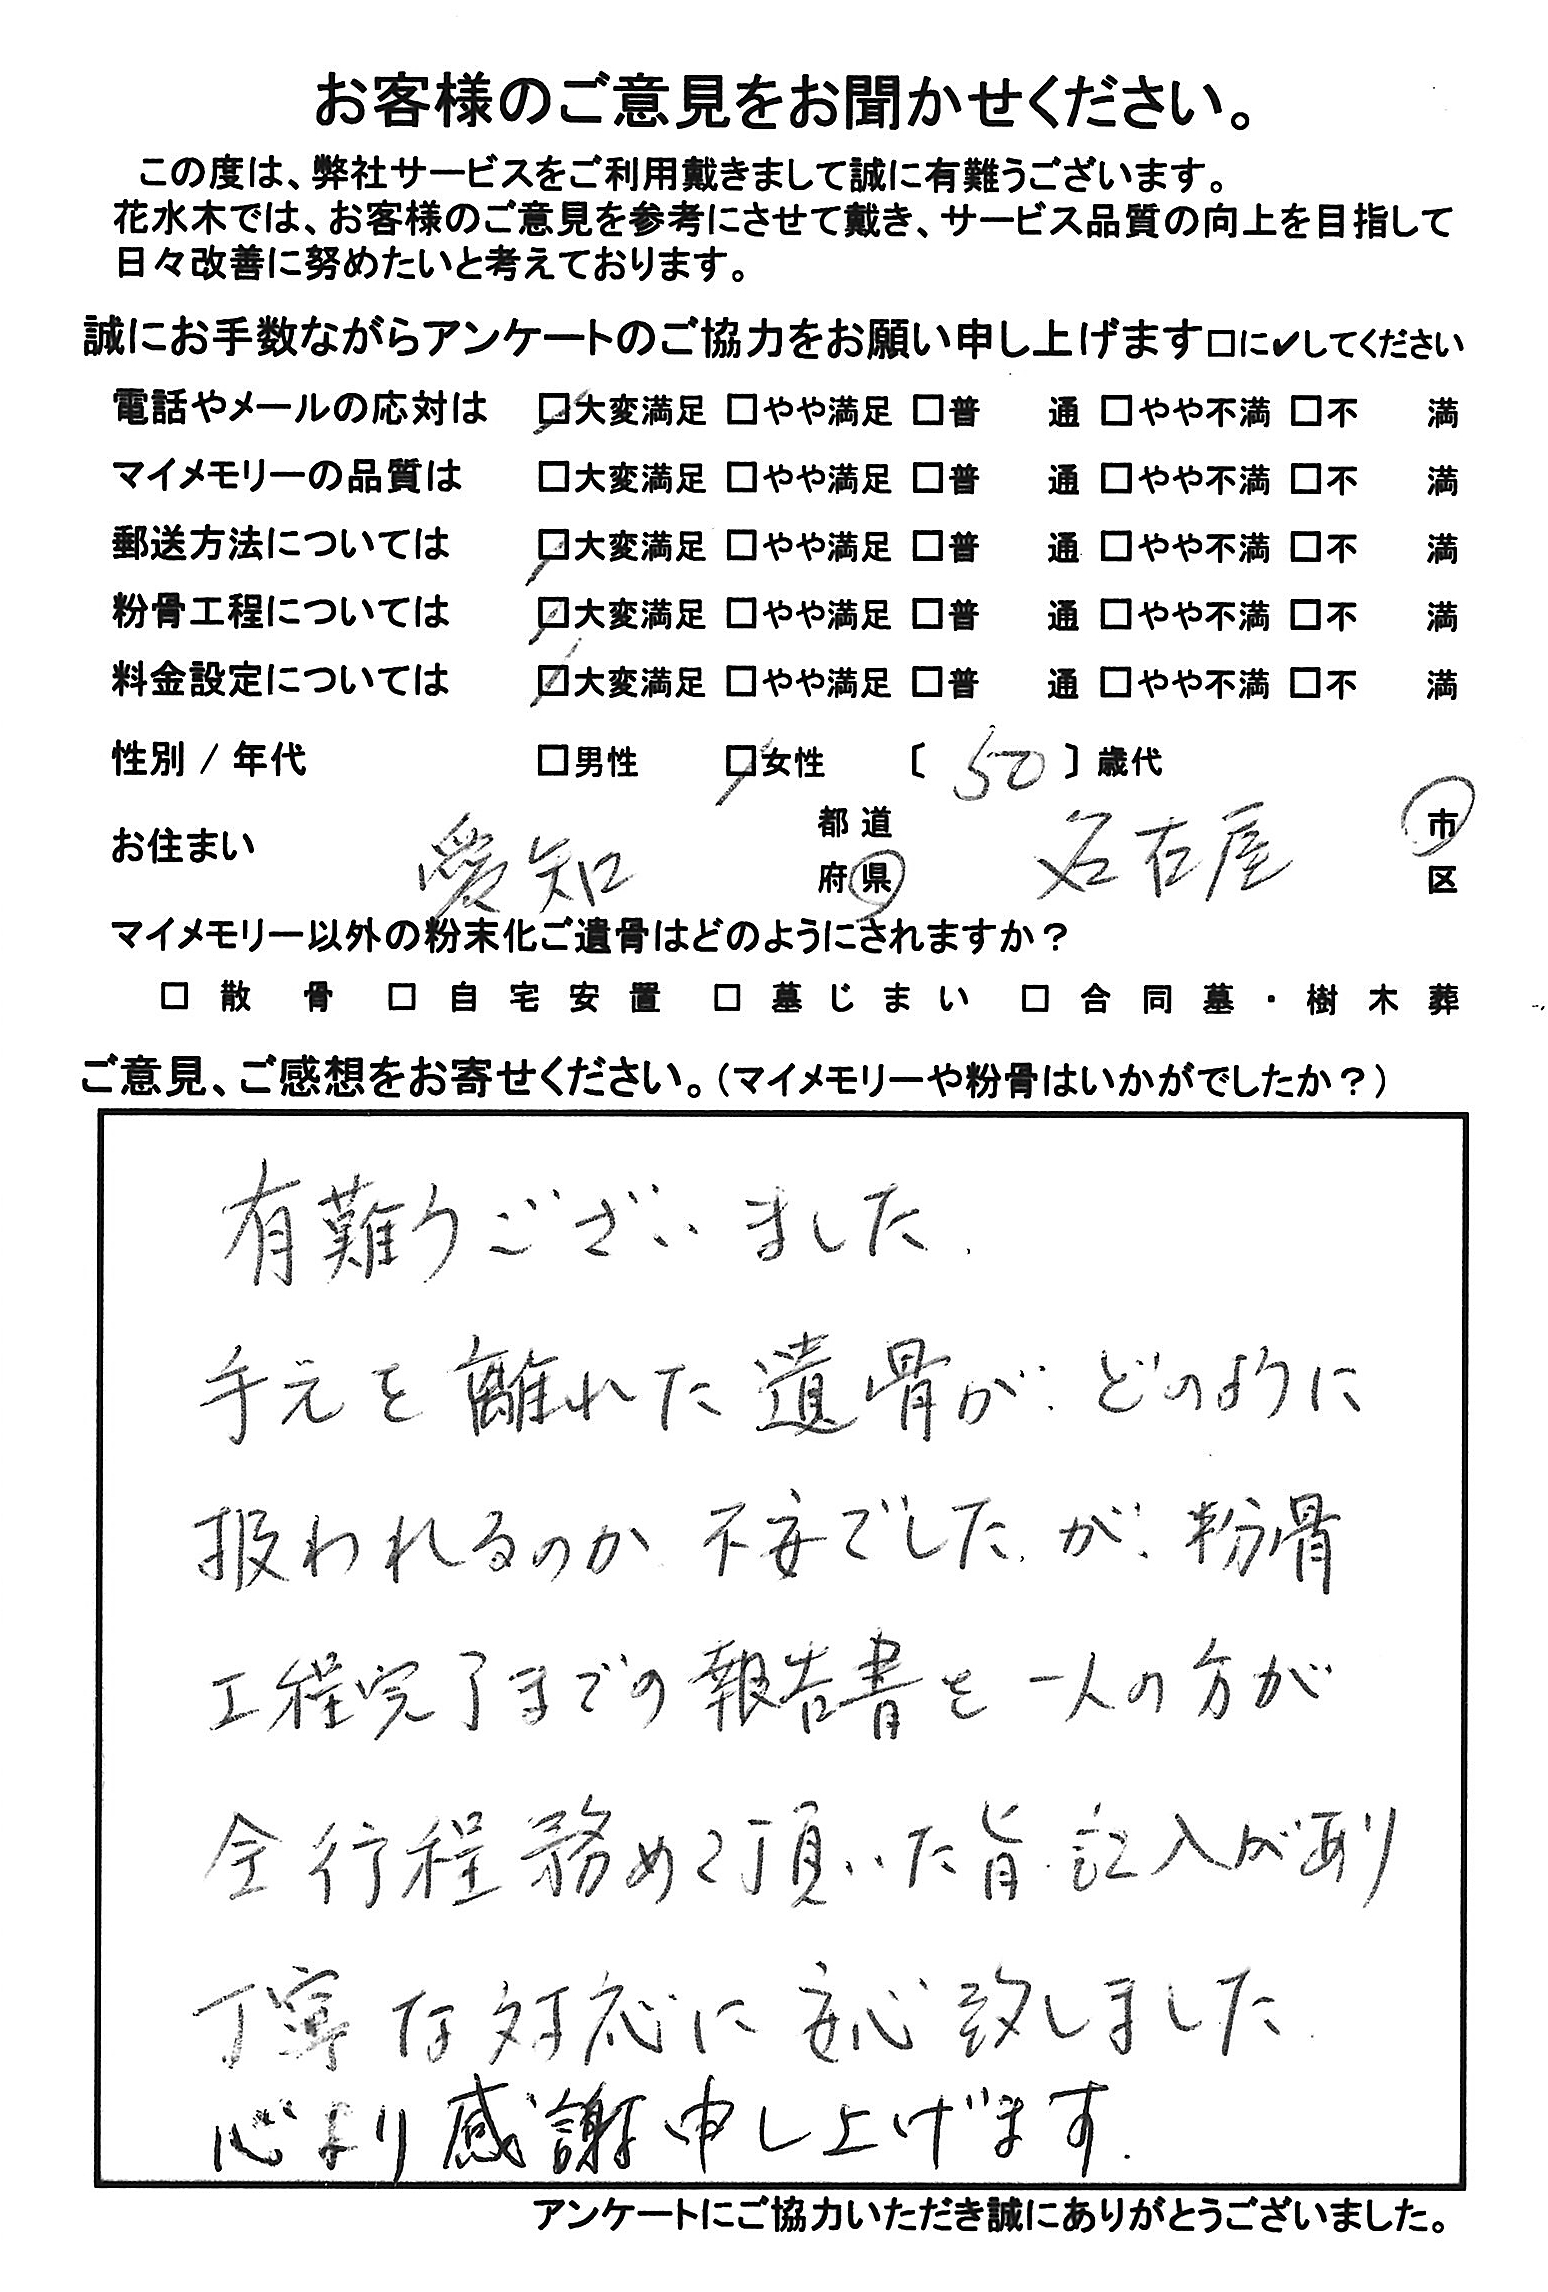 お客様のご意見をお聞かせください。
この度は、弊社サービスをご利用戴きまして誠に有難うございます。
花水木では、お客様のご意見を参考にさせて戴き、サービス品質の向上を目指して
日々改善に努めたいと考えております。
誠にお手数ながらアンケートのご協力をお願い申し上げます□に✔してください
電話やメールの応対は ☑大変満足 □やや満足 □普 通 □やや不満 □不 満
マイメモリーの品質は □大変満足 □やや満足 □普 通 □やや不満 □不 満
郵送方法については ☑大変満足 □やや満足 □普 通 □やや不満 □不 満
粉骨工程については ☑大変満足 □やや満足 □普 通 □やや不満 □不 満
料金設定については ☑大変満足 □やや満足 □普 通 □やや不満 □不 満
性別 / 年代 □男性 ☑女性 〔 50 〕歳代
お住まい 愛知 都道府県 名古屋 市区
マイメモリー以外の粉末化ご遺骨はどのようにされますか？
□ 散骨 □ 自宅安置 □ 墓じまい □ 合同墓・樹木葬
ご意見、ご感想をお寄せください。（マイメモリーや粉骨はいかがでしたか？）
有難うございました。
手元を離れた遺骨が、どのように
扱われるのか 不安でしたが、粉骨
工程完了までの報告書を一人の方が
全行程務めて頂いた旨、記入があり
丁寧な対応に安心致しました。
心より感謝申し上げます。
アンケートにご協力いただき誠にありがとうございました。